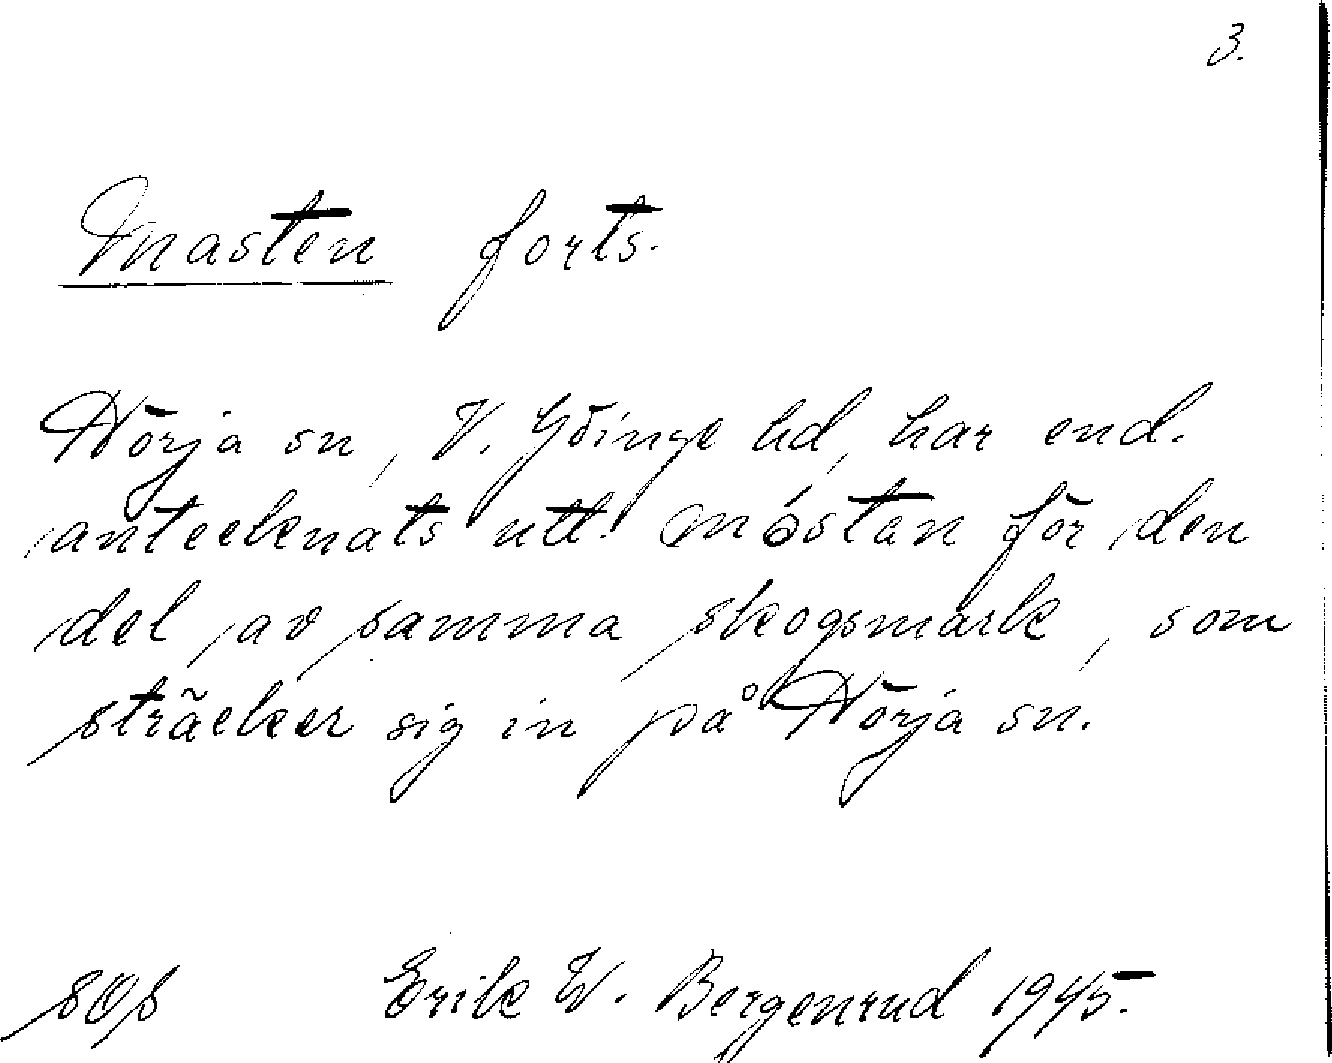 3.
Masten forts.
Hörja sn, V. Göinge hd, har end.
antecknats utt. mósten för den
del av samma skogsmark, som
sträcker sig in på Hörja sn.
Erik W. Bergenrud 1945.